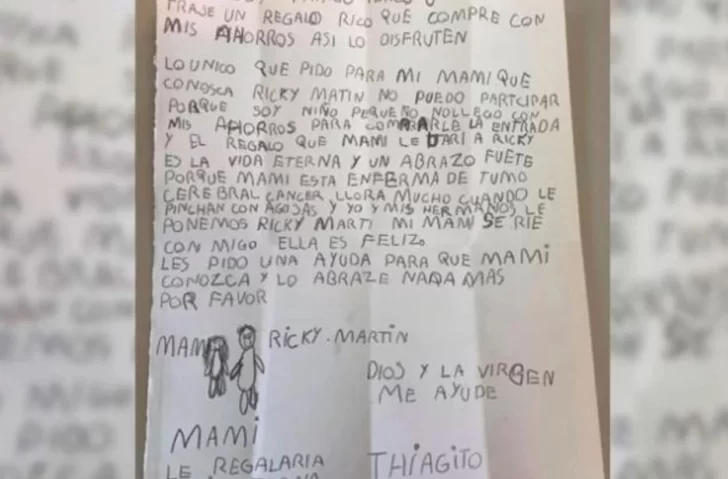 TRASE UN REGALO RICO QUE COMPRE CON
MIS AHORROS ASI LO DISFRUTEN
LO UNICO QUE PIDO PARA MI MAMI QUE
CONOSCA RICKY MATIN NO PUEDO PARTCIPAR
PORQUE SOY NIÑO PEQUEÑO NOLLEGO CON
MIS AHORROS PARA COMARARLE LA ENTRADA
Y EL REGALO QUE MAMI LE DARI A RICKY
ES LA VIDA ETERNA Y UN ABRAZO FUETE
PORQUE MAMI ESTA ENFERMA DE TUMO
CEREBRAL CANCER LLORA MUCHO CUANDO LE
PINCHAN CON AGOJAS Y YO Y MIS HERMANOS LE
PONEMOS RICKY MARTI MI MAMI SE RIE
CON MIGO ELLA ES FELIZ
LES PIDO UNA AYUDA PARA QUE MAMI
CONOZCA Y LO ABRAZE NADA MAS
POR FAVOR
MAMI RICKY.MARTIN
DIOS Y LA VIRGEN
ME AYUDE
MAMI
LE REGALARIA
THIAGITO